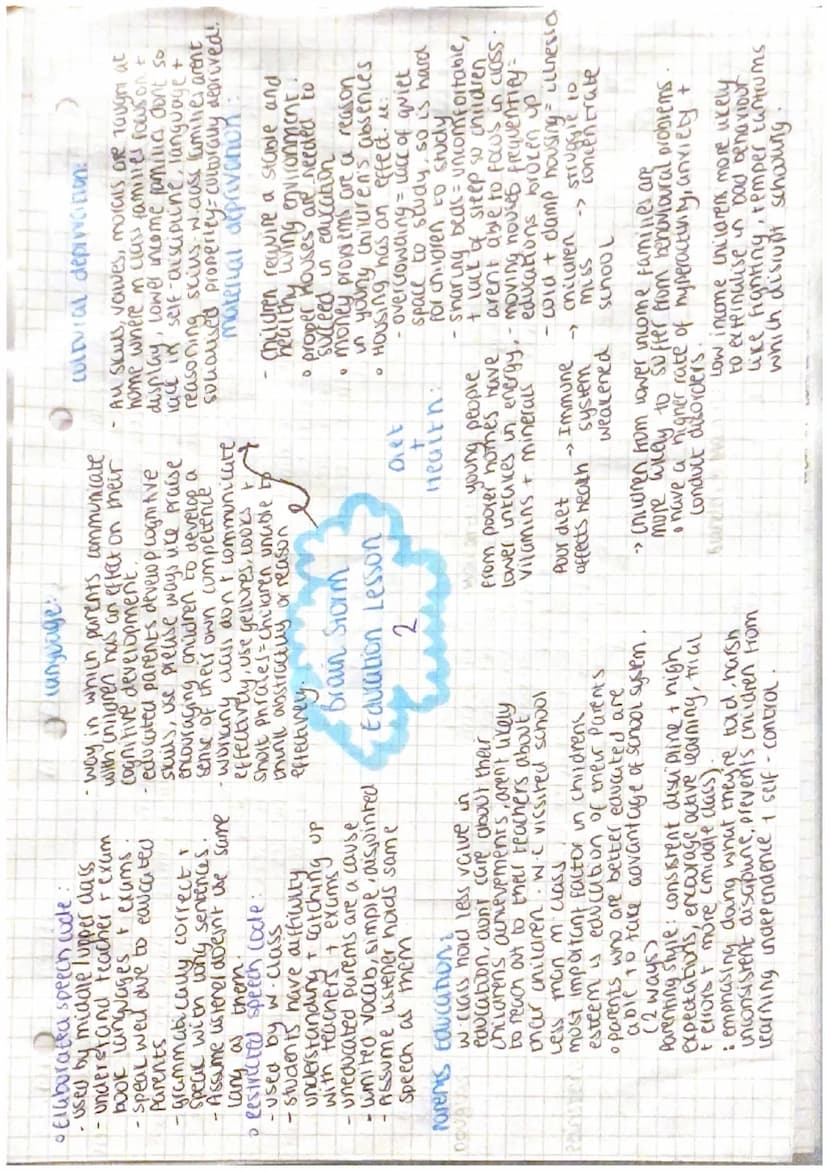 ◦ Elaborated speech code:
- used by middle/upper class
- understand teacher + exam
book languages + exams.
- speak well due to educated
parents
- grammatically correct +
speak with long sentences.
- Assume listener doesnt use same
lang as them.
◦ restricted speech code:
- used by w.class
- students have difficulty
understanding + catching up
with teachers + exams
- uneducated parents are a cause
- limited vocab, simple, disjointed
- Assume listener holds same
speech as them
language:
- way in which parents communicate
with children has an effect on their
cognitive development.
- educated parents develop cognitive
skills, use precise ways like praise
encouraging children to develop a
sense of their own competence
- working class don't communicate
effectively, use gestures, looks +
short phrases = children unable to
think abstractly or reason
effectively.
cultural deprivation:
- All skills, values, morals are taught at
home where m class families reason +
display, lower income families dont so
lack in self-discipline, language +
reasoning skills. w class families arent
socialised properly = culturally deprived!
material deprivation:
- Children require a stable and
healthy living environment!
◦ proper houses are needed to
succeed in education
◦ money problems are a reason
in young children's absences
◦ Housing has an effect. i.e:
- overcrowding = lack of quiet
space to study, so is hard
for children to study
- sharing beds = uncomfortable,
+ lack of sleep so children
arent able to focus in class.
- moving houses frequently =
educations broken up
- cold + damp housing = illness
→ children miss school → struggle to concentrate
Brain Storm
Education Lesson
2
Diet
+
Health:
young people
from poorer homes have
lower intakes in energy,
vitamins + minerals
Poor diet
affects health → Immune
system
weakened
→ children from lower income families are
more likely to suffer from behavioural problems.
◦ have a higher rate of hyperactivity, anxiety +
conduct disorders.
Low income children more likely
to externalise in bad behaviour
like fighting, temper tantrums
which disrupt schooling.
Parents Education:
w.class hold less value in
education, dont care about their
childrens achievements, arent likely
to reach out to their teachers about
their children. w.c vissited school
less than m class
most important factor in childrens
esteem is education of their parents
◦ parents who are better educated are
able to take advantage of school system.
(2 ways)
Parenting style: consistent discipline + high
expectations, encourage active learning, trial
+ errors + more (middle class).
: emphasing doing what they're told, harsh
inconsistent discipline, prevents children from
learning independence + self-control.